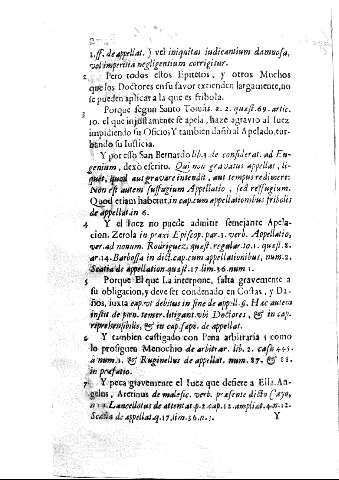 2
1. ff. de appellat. ) vel iniquitas iudicantium damnosa,
vel imperitia negligentium corrigitur.
2 Pero todos estos Epitetos, y otros Muchos
que los Doctores en su favor extienden largamente, no
se pueden aplicar a la que es fribola.
3 Porque segun Santo Tomas. 2. 2. quæst. 69. artic.
10. el que injustamente se apela, haze agravio al Juez
impidiendo su Oficio, Y tambien daña al Apelado, tur-
bando su Iusticia.
Y por esso San Bernardo lib. 3. de considerat. ad Eu-
genium, dexò escrito. Qui non gravatus appellat, li-
quet, quod aut gravare intendit, aut tempus redimere:
Non est autem suffugium Appellatio, sed reffugium.
Quod etiam habetur in cap. cum appellationibus fribolis
de appellat. in 6.
4 Y el Iuez no puede admitir semejante Apela-
cion. Zerola in praxi Episcop. par. 1. verb. Appellatio,
ver. ad nonum. Rodriguez, quæst. regular. 10. 1. quæst. 8.
ar. 14. Barbossa in dict. cap. cum appellationibus, num. 2.
Scatia de appellation. quæst. 17. lim. 36. num 1.
5 Porque El que La interpone, falta gravemente à
su obligacion, y deve ser condenado en Costas, y Da-
ños, iuxta cap. vt debitus in fine de appell. §. Hac autem
instit. de pœn. temer. litigant. vbi Doctores, & in cap.
reprehensibilis, & in cap. sæpè. de appellat.
6 Y tambien castigado con Pena arbitraria; como
lo prosiguen Menochio de arbitrar. lib. 2. casu 445.
à num. 1. & Ruginellus de appellat. num. 87. & 88.
in præfatio.
7 Y peca gravemente el Iuez que defiere à Ella. An-
gelus, Aretinus de malefic. verb. præsente dicto Cayo,
n. 19. Lancellotus de attentat. p. 2. cap. 12. ampliat. 4. n. 12.
Scatia de appellat. q. 17. lim. 36. n. 3.
Y